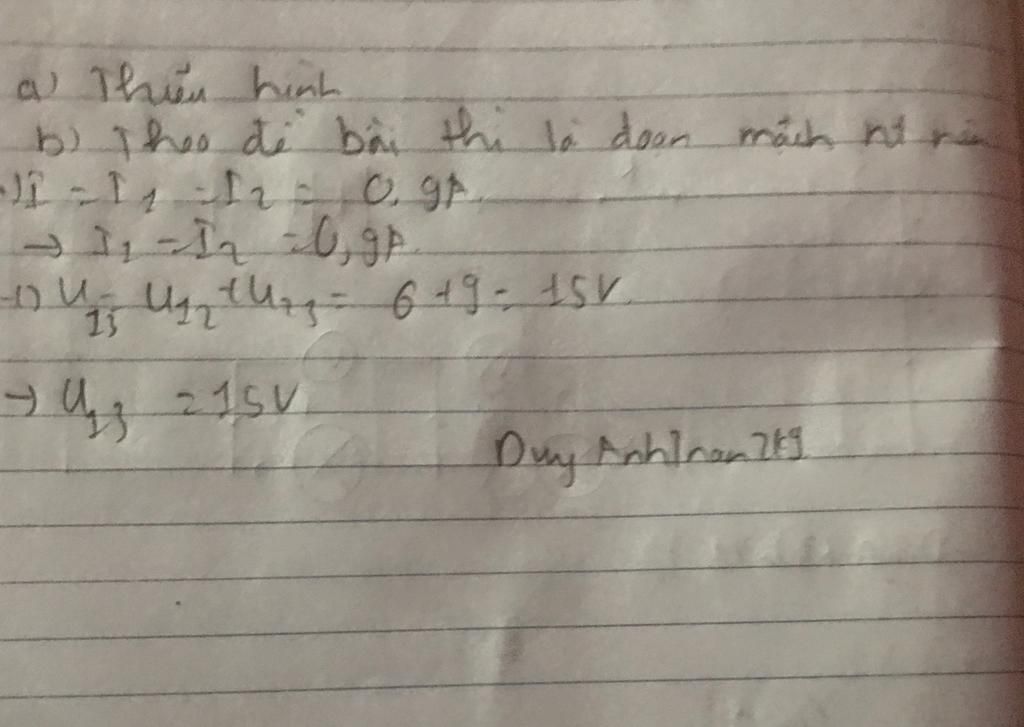 a) Thiếu hình
b) Theo đề bài thì là đoạn mạch nt nên
+) I = I1 = I2 = 0,9A
→ I1 = I2 = 0,9A
+) U13 = U12 + U23 = 6 + 9 = 15V
→ U13 = 15V
Duy Anh